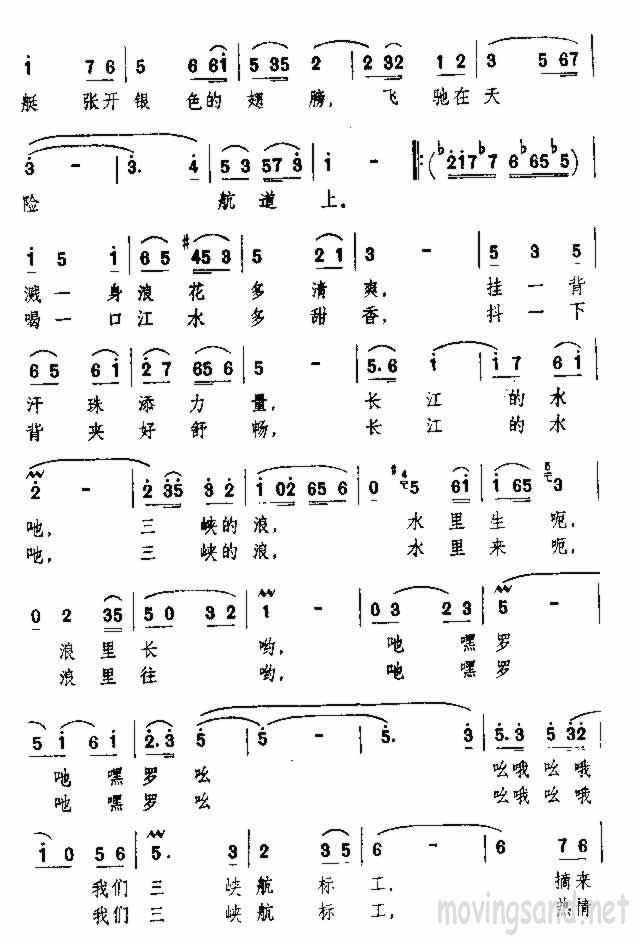 1 7 6 | 5 6 6 1 | 5 3 5 2 | 2 3 2 1 2 | 3 5 6 7 |
艇 张开银 色的翅 膀, 飞 驰在天
3 - | 3. 4 | 5 3 5 7 3 | 1 - |: (♭2 1 7 ♭7 6 ♭6 5 ♭5) |
险 航道上.
1 5 1 | 6 5 #4 5 3 | 5 2 1 | 3 - | 5 3 5 |
溅一身浪花多清爽, 挂一背
喝一口江水多甜香, 抖一下
6 5 6 1 | 2 7 6 5 6 | 5 - | 5. 6 1 | 1 7 6 1 |
汗珠添力量, 长江的水
背夹好舒畅, 长江的水
2 - | 2 3 5 3 2 | 1 0 2 6 5 6 | 0 5 6 1 | 1 6 5 3 |
吔, 三峡的浪, 水里生呃,
吔, 三峡的浪, 水里来呃,
0 2 3 5 | 5 0 3 2 | 1 - | 0 3 2 3 | 5 -
浪里长哟, 吔嘿罗
浪里往哟, 吔嘿罗
5 1 6 1 | 2. 3 5 | 5 - | 5. 3 | 5. 3 5 3 2 |
吔嘿罗吆 吆哦吆哦
吔嘿罗吆 吆哦吆哦
1 0 5 6 | 5. 3 | 2 3 5 | 6 - | 6 7 6 |
我们三峡航标工, 摘来
我们三峡航标工, 热情
movingsand.net